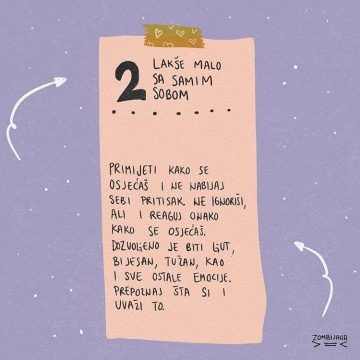 2
LAKŠE MALO
SA SAMIM
SOBOM
PRIMIJETI KAKO SE
OSJEĆAŠ I NE NABIJAJ
SEBI PRITISAK. NE IGNORIŠI,
ALI I REAGUJ ONAKO
KAKO SE OSJEĆAŠ.
DOZVOLJENO JE BITI LJUT,
BIJESAN, TUŽAN, KAO
I SVE OSTALE EMOCIJE.
PREPOZNAJ ŠTA SI I
UVAŽI TO.
ZOMBIJANA